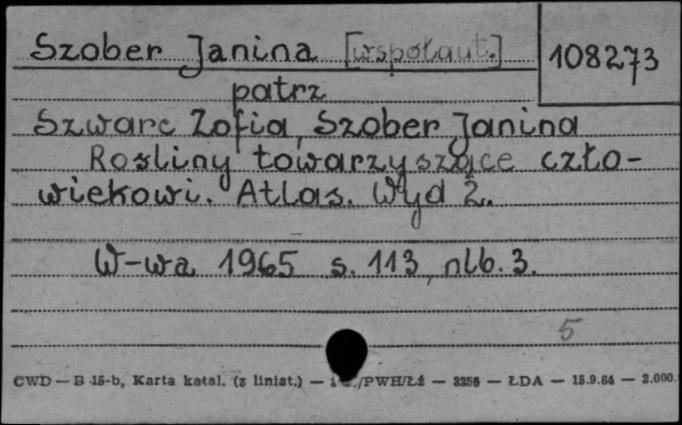 Szober Janina [współaut.] 108273
patrz
Szwarc Zofia, Szober Janina
Rośliny towarzyszące czło-
wiekowi. Atlas. Wyd 2.
W-wa 1965 s. 113, nlb. 3.
5
CWD — B 15-b, Karta katal. (z liniat.) — /PWH/Łź — 3356 — ŁDA — 15.9.64 — 2.000.